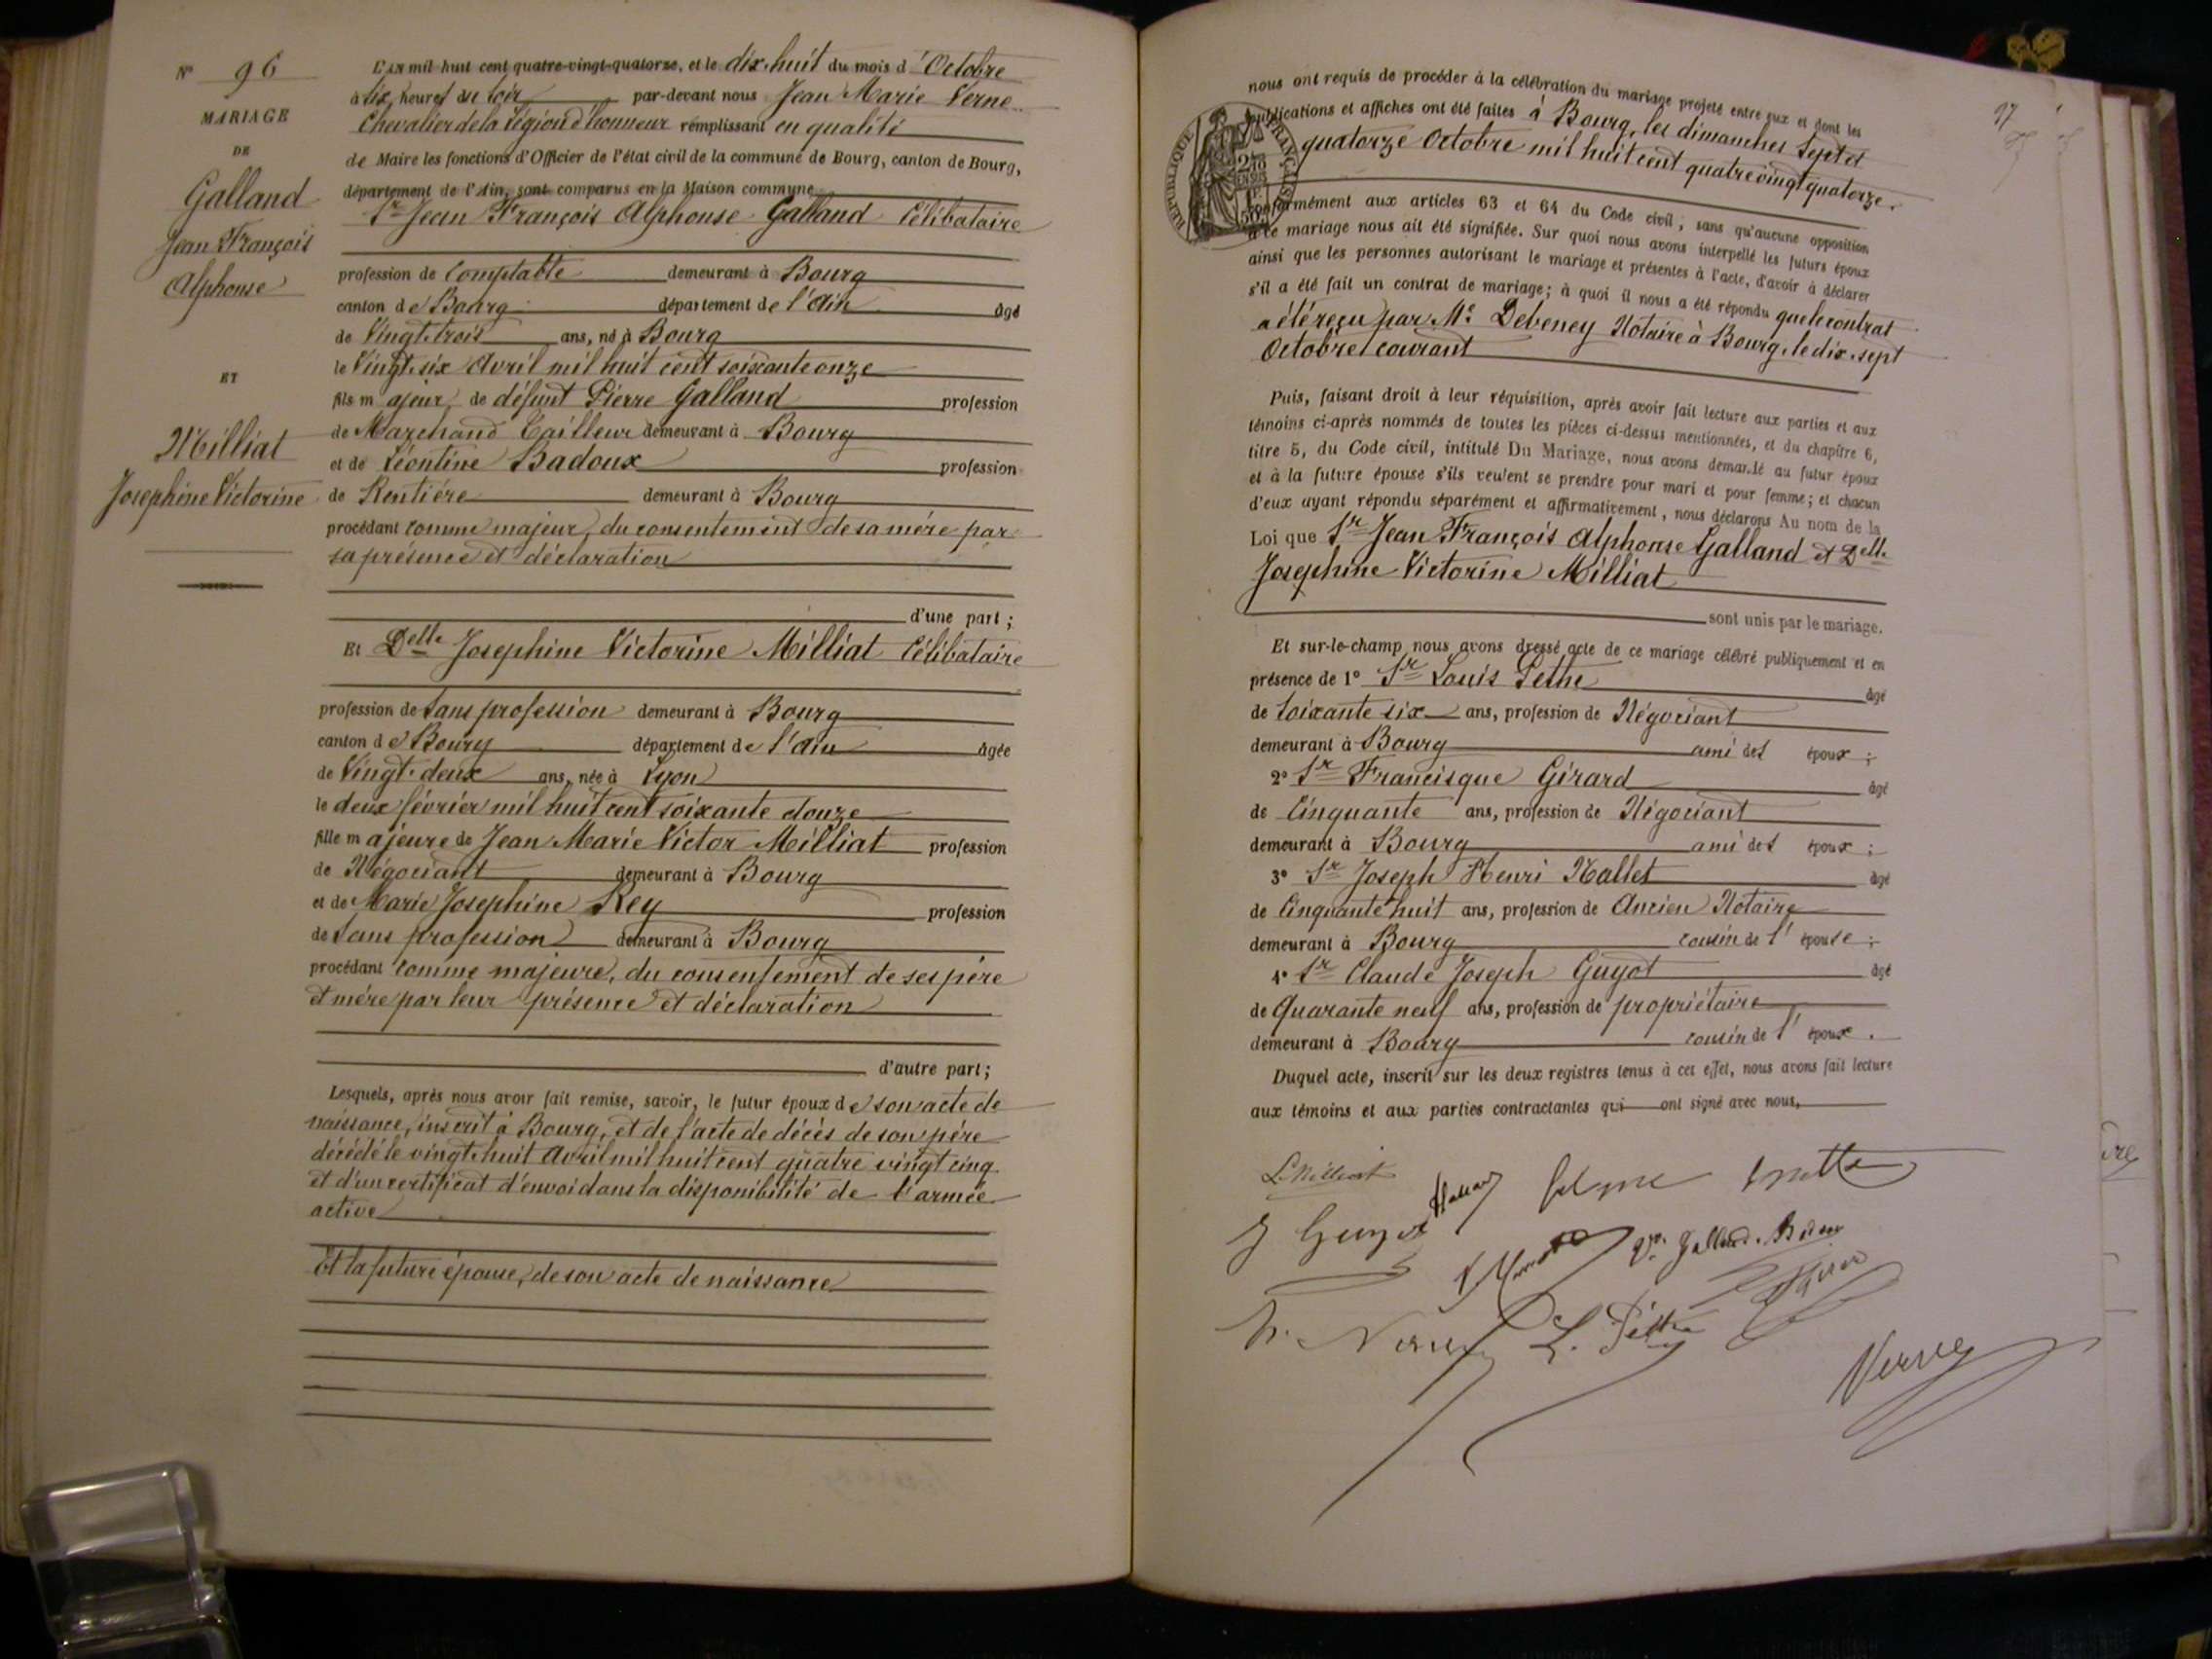 N° 96
MARIAGE
DE
Galland
Jean François
Alphonse
ET
Milliat
Josephine Victorine
L'AN mil huit cent quatre-vingt-quatorze, et le dix-huit du mois d'Octobre
à six heures du soir par-devant nous Jean Marie Verne
Chevalier de la Légion d'honneur remplissant en qualité
de Maire les fonctions d'Officier de l'état civil de la commune de Bourg, canton de Bourg,
département de l'Ain, sont comparus en la Maison commune
Sr Jean François Alphonse Galland Célibataire
profession de Comptable demeurant à Bourg
canton de Bourg département de l'Ain âgé
de Vingt-trois ans, né à Bourg
le Vingt-six Avril mil huit cent soixante onze
fils majeur de défunt Pierre Galland profession
de Marchand Tailleur demeurant à Bourg
et de Léontine Badoux profession
de Rentière demeurant à Bourg
procédant comme majeur, du consentement de sa mère par
sa présence et déclaration
d'une part ;
Et Delle Josephine Victorine Milliat Célibataire
profession de Sans profession demeurant à Bourg
canton de Bourg département de l'Ain âgée
de Vingt-deux ans, née à Lyon
le deux février mil huit cent soixante douze
fille majeure de Jean Marie Victor Milliat profession
de Négociant demeurant à Bourg
et de Marie Josephine Rey profession
de Sans profession demeurant à Bourg
procédant comme majeure, du consentement de ses père
et mère par leur présence et déclaration
d'autre part ;
Lesquels, après nous avoir fait remise, savoir, le futur époux de son acte de
naissance, inscrit à Bourg, et de l'acte de décès de son père
décédé le vingt-huit Avril mil huit cent quatre vingt cinq
et d'un certificat d'envoi dans la disponibilité de l'armée
active
Et la future épouse, de son acte de naissance
97
nous ont requis de procéder à la célébration du mariage projeté entre eux et dont les
publications et affiches ont été faites à Bourg, les dimanches Sept et
quatorze Octobre mil huit cent quatre vingt quatorze.
RÉPUBLIQUE FRANÇAISE
conformément aux articles 63 et 64 du Code civil, sans qu'aucune opposition
à ce mariage nous ait été signifiée. Sur quoi nous avons interpellé les futurs époux
ainsi que les personnes autorisant le mariage et présentes à l'acte, d'avoir à déclarer
s'il a été fait un contrat de mariage; à quoi il nous a été répondu que le contrat
a été reçu par Me Debeney Notaire à Bourg, le dix-sept
Octobre courant
Puis, faisant droit à leur réquisition, après avoir fait lecture aux parties et aux
témoins ci-après nommés de toutes les pièces ci-dessus mentionnées, et du chapitre 6,
titre 5, du Code civil, intitulé Du Mariage, nous avons demandé au futur époux
et à la future épouse s'ils veulent se prendre pour mari et pour femme; et chacun
d'eux ayant répondu séparément et affirmativement, nous déclarons Au nom de la
Loi que Sr Jean François Alphonse Galland et Delle
Josephine Victorine Milliat
sont unis par le mariage.
Et sur-le-champ nous avons dressé acte de ce mariage célébré publiquement et en
présence de 1° Sr Louis Pethe âgé
de Soixante six ans, profession de Négociant
demeurant à Bourg ami des époux ;
2° Sr Francisque Girard âgé
de Cinquante ans, profession de Négociant
demeurant à Bourg ami des époux ;
3° Sr Joseph Henri Nallet âgé
de Cinquante huit ans, profession de Ancien Notaire
demeurant à Bourg cousin de l'épouse ;
4° Sr Claude Joseph Guyot âgé
de Quarante neuf ans, profession de propriétaire
demeurant à Bourg cousin de l'époux .
Duquel acte, inscrit sur les deux registres tenus à cet effet, nous avons fait lecture
aux témoins et aux parties contractantes qui ont signé avec nous,
J Guyot
Vve Galland Badoux
Verne